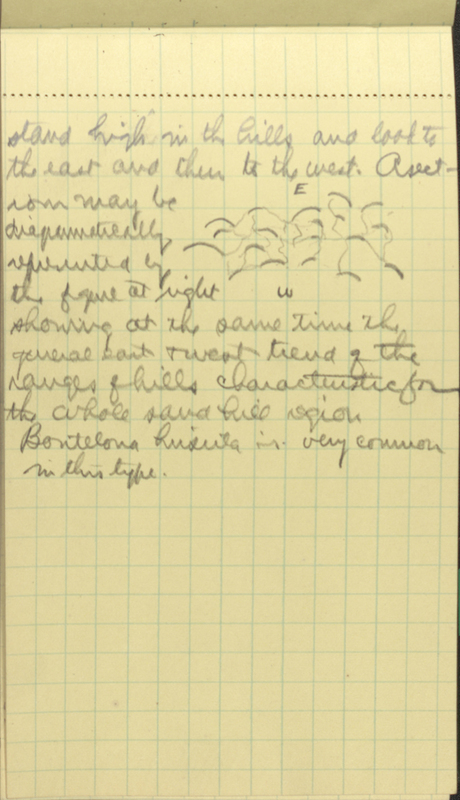 stand high in the hills and look to
the east and then to the west. A sect-
ion may be
E
diagrammatically
represented by
the figure at right
W
showing at the same time the
general east & west trend of the
ranges of hills characteristic for
the whole sand hill region
Bouteloua hirsuta is very common
in this type.